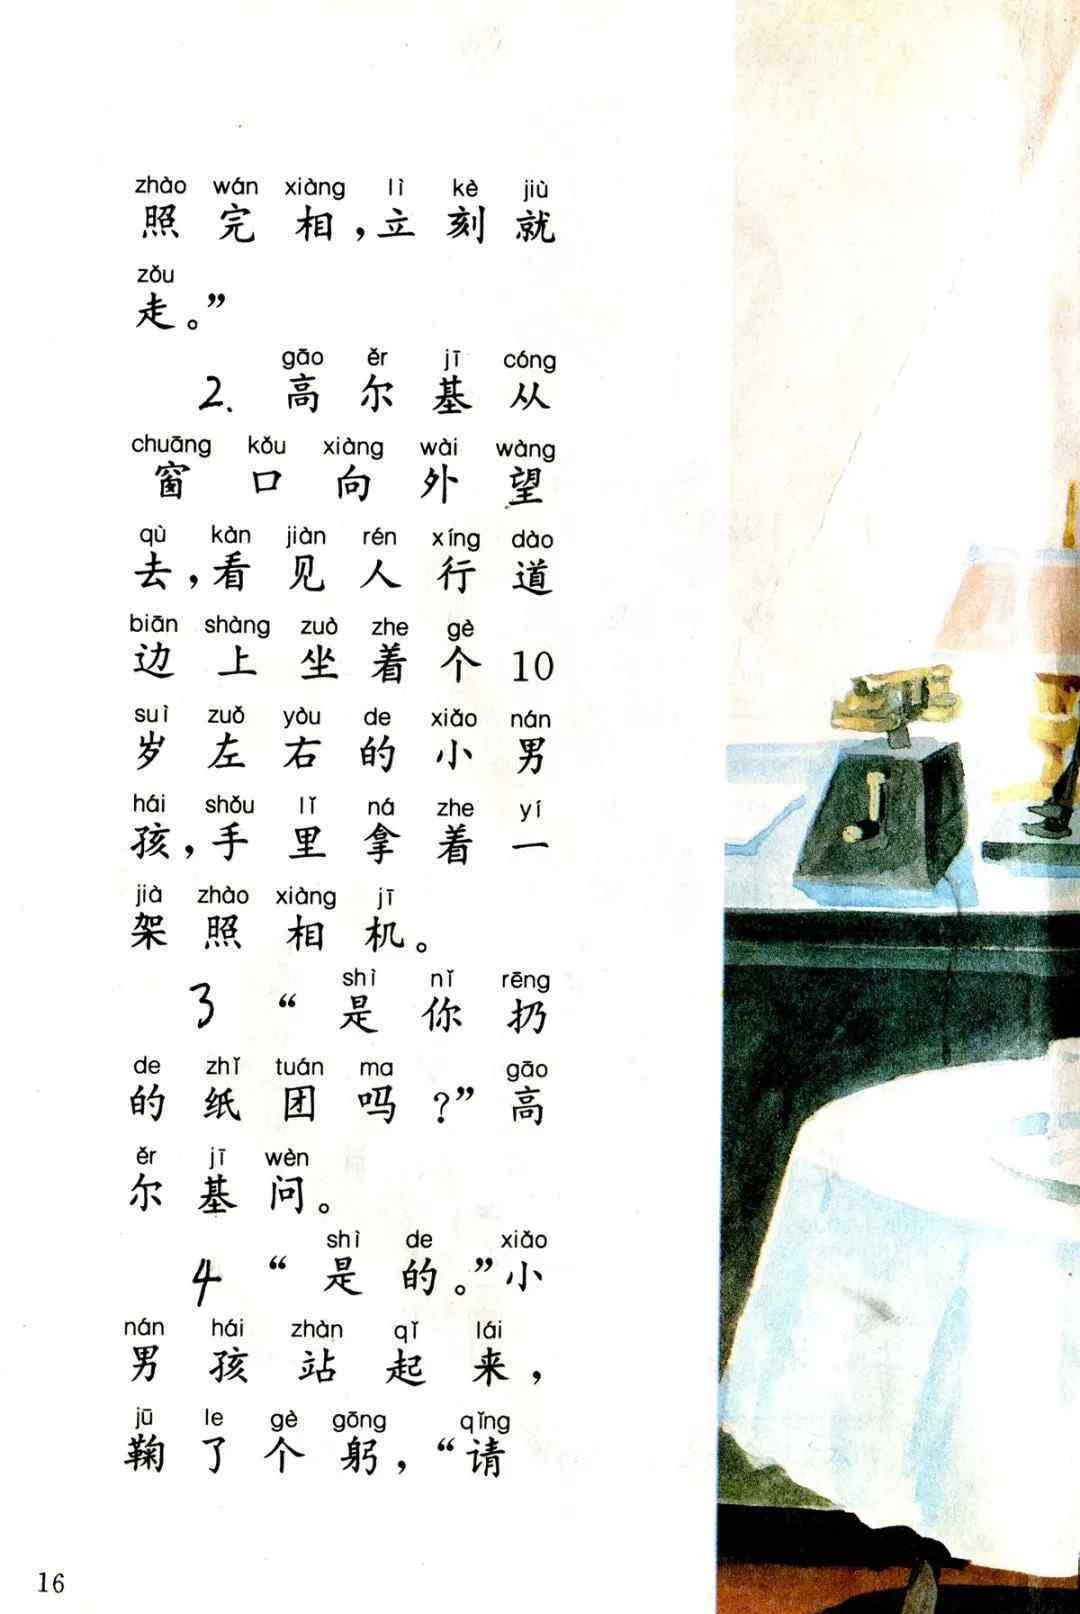 zhào wán xiàng lì kè jiù
照完相，立刻就
zǒu
走。”
gāo ěr jī cóng
2. 高尔基从
chuāng kǒu xiàng wài wàng
窗口向外望
qù kàn jiàn rén xíng dào
去，看见人行道
biān shàng zuò zhe gè
边上坐着个10
suì zuǒ yòu de xiǎo nán
岁左右的小男
hái shǒu lǐ ná zhe yí
孩，手里拿着一
jià zhào xiàng jī
架照相机。
shì nǐ rēng
3 “是你扔
de zhǐ tuán ma gāo
的纸团吗？”高
ěr jī wèn
尔基问。
shì de xiǎo
4 “是的。”小
nán hái zhàn qǐ lái
男孩站起来，
jū le gè gōng qǐng
鞠了个躬，“请
16